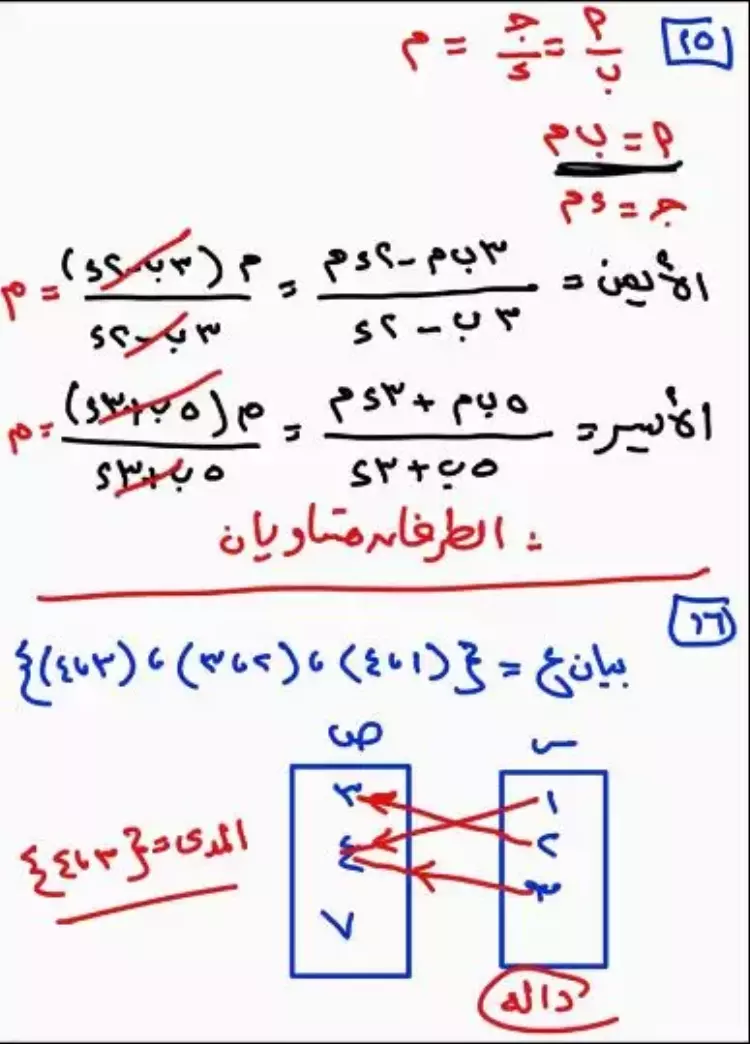 ٢٥ ‏أ/ب = جـ/د = م
أ = ب م
جـ = د م
الأيمن = (٣ب م - ٢د م)/(٣ب - ٢د) = م(٣ب - ٢د)/(٣ب - ٢د) = م
الأيسر = (٥ب م + ٣د م)/(٥ب + ٣د) = م(٥ب + ٣د)/(٥ب + ٣د) = م
∴ الطرفان متساويان
٢٦
بيان ع = {(١، ٤)، (٢، ٣)، (٣، ٤)}
س ص
١ ٣
٢ ٤
٣ ٧
المدى = {٣، ٤}
دالة